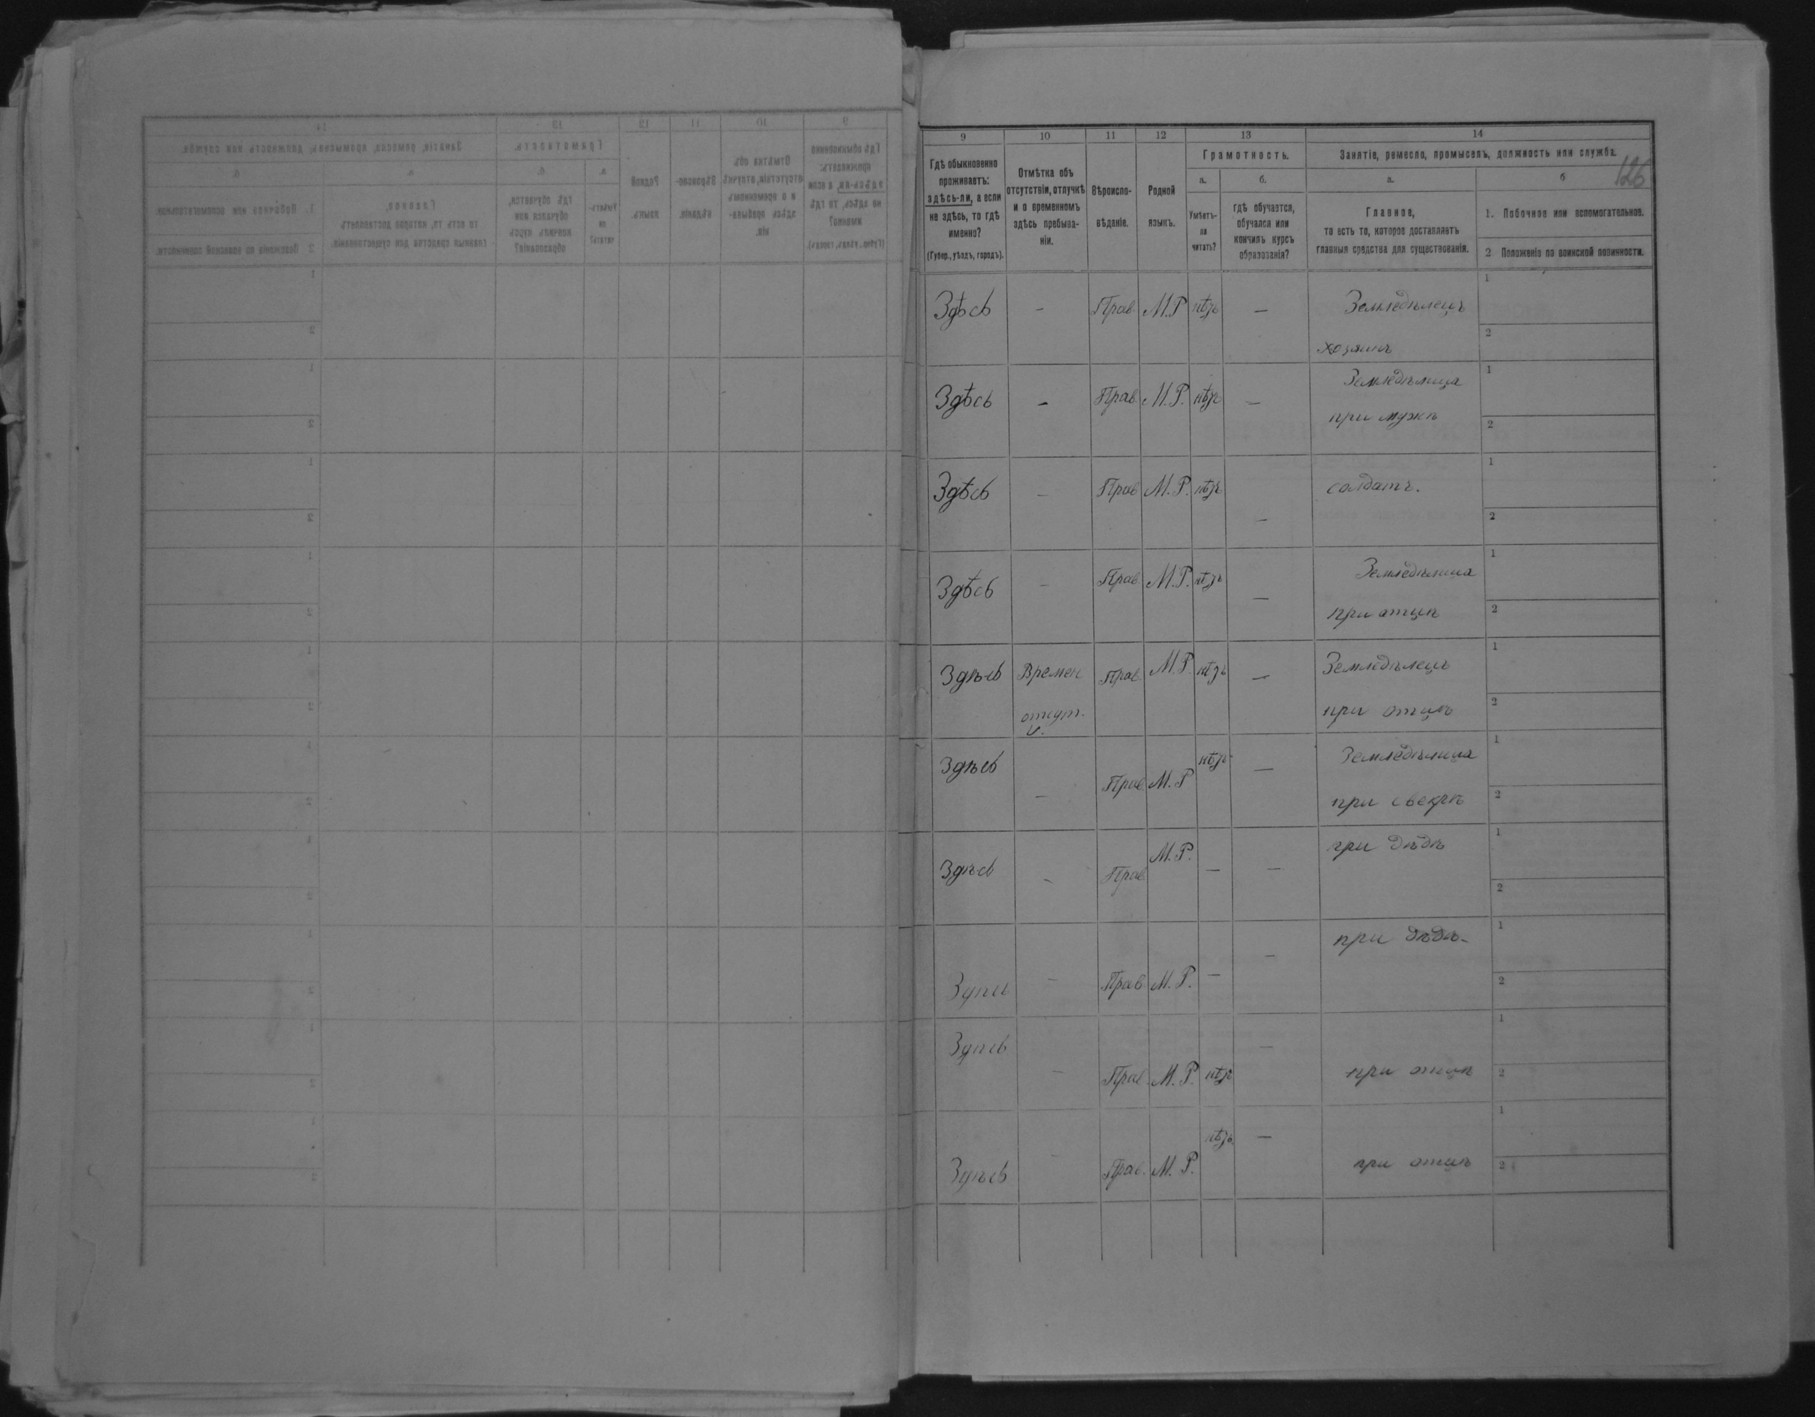 126
9 10 11 12 13 14
Гдѣ обыкновенно проживаетъ: здѣсь-ли, а если не здѣсь, то гдѣ именно? (Губер., уѣздъ, городъ).
Отмѣтка объ отсутствіи, отлучкѣ и о временномъ здѣсь пребываніи.
Вѣроисповѣданіе.
Родной языкъ.
Грамотность.
а.
Умѣетъ-ли читать?
б.
гдѣ обучается, обучался или кончилъ курсъ образованія?
Занятіе, ремесло, промыселъ, должность или служба.
а.
Главное,
то есть то, которое доставляетъ главныя средства для существованія.
б
1. Побочное или вспомогательное.
2 Положеніе по воинской повинности.
Здѣсь – Прав М.Р нѣтъ – Земледѣлецъ 1
хозяинъ 2
Здѣсь – Прав М.Р. нѣтъ – Земледѣлица 1
при мужѣ 2
Здѣсь – Прав М.Р. нѣтъ – солдатъ. 1
2
Здѣсь – Прав М.Р. нѣтъ – Земледѣлица 1
при отцѣ 2
Здѣсь Времен Прав М.Р нѣтъ – Земледѣлецъ 1
при отцѣ 2
Здѣсь – Прав М.Р нѣтъ – Земледѣлица 1
при свекрѣ 2
Здѣсь – Прав М.Р. – – при дѣдѣ 1
2
Здѣсь – Прав М.Р. – – при дѣдѣ 1
2
Здѣсь – Прав М.Р. нѣтъ – при отцѣ 1
2
Здѣсь – Прав. М.Р. нѣтъ – при отцѣ 1
2